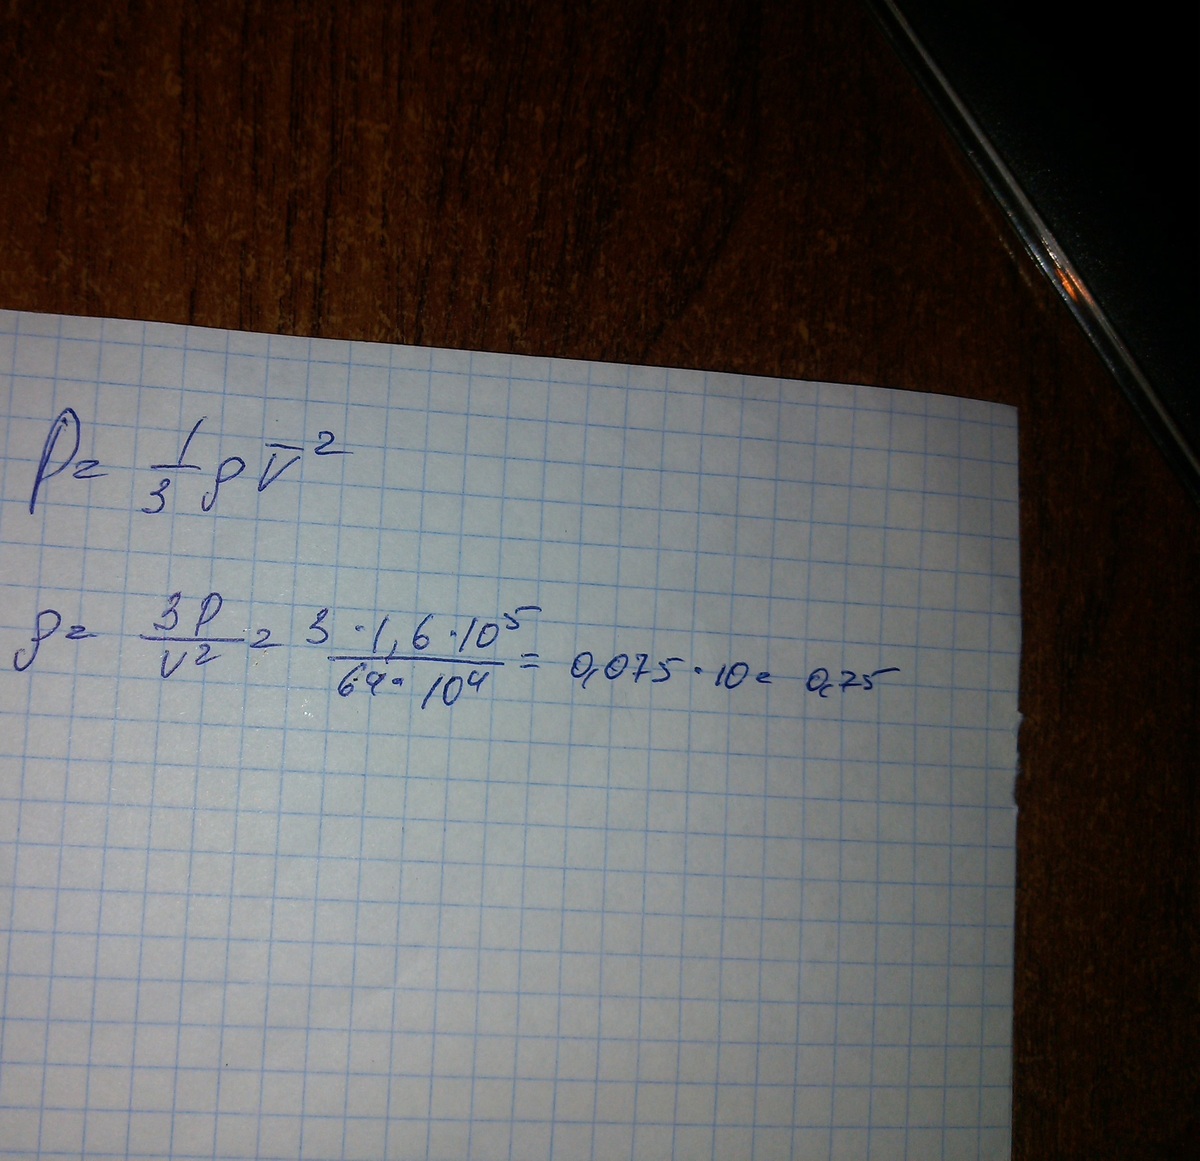 P = 1/3 ρ v̄²
ρ = 3P/v² = 3 · 1,6 · 10⁵ / 64 · 10⁴ = 0,075 · 10 = 0,75